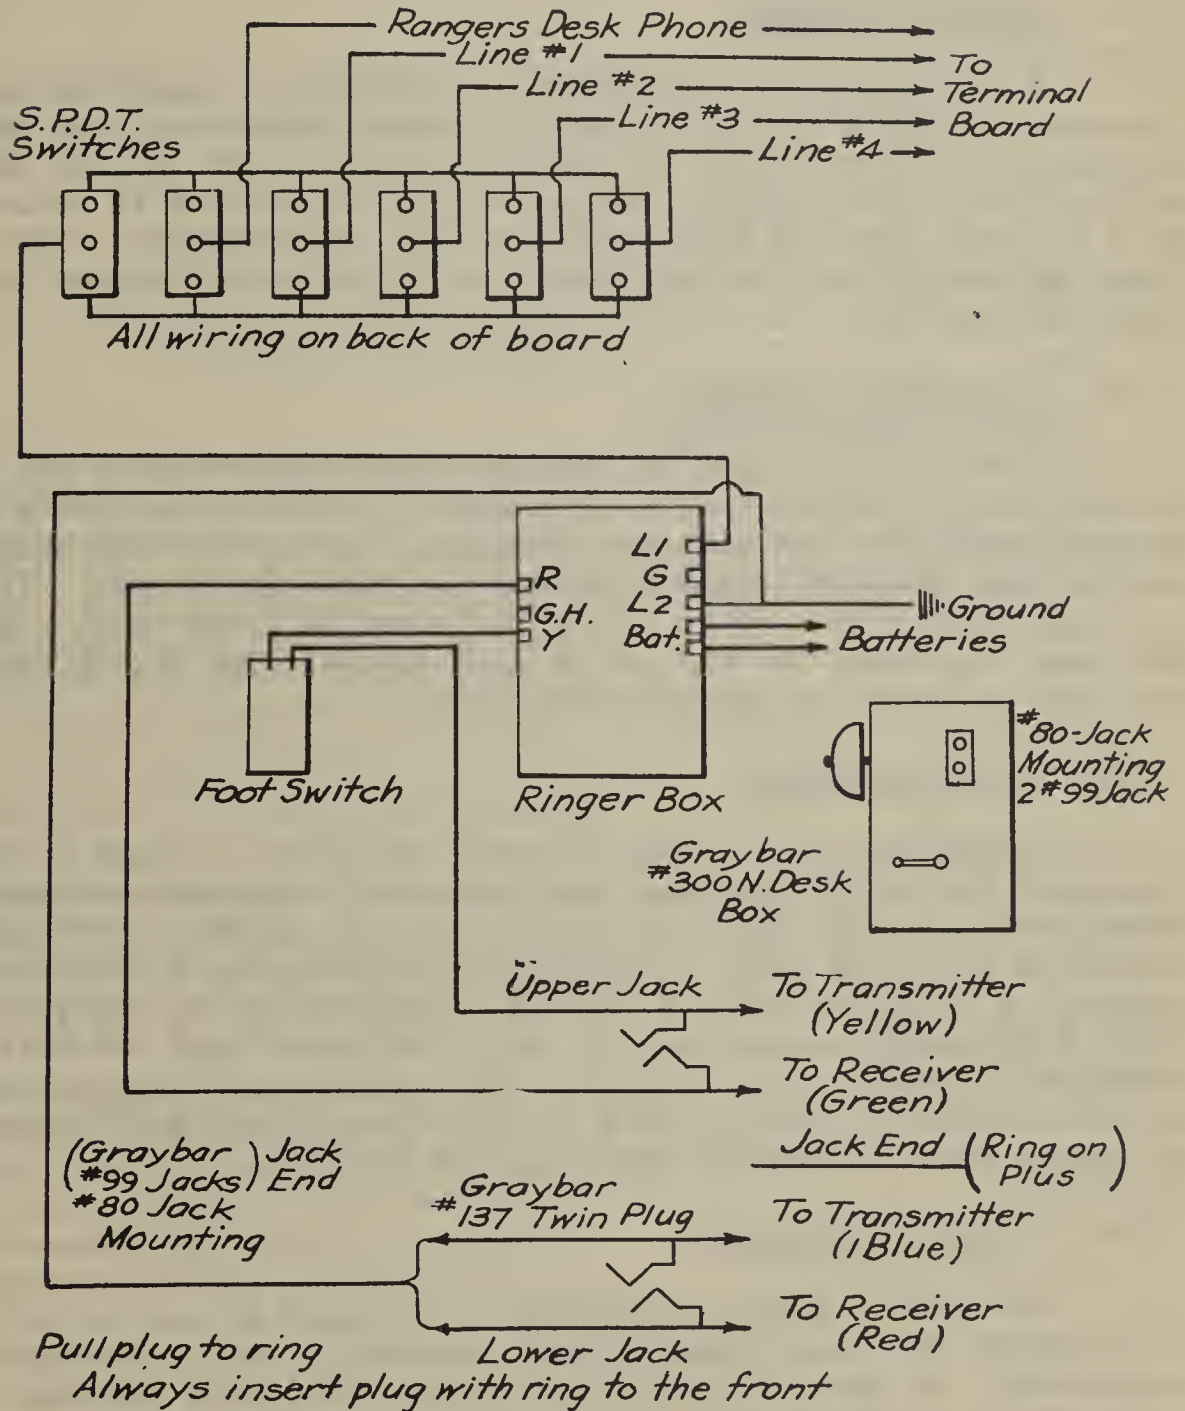 Rangers Desk Phone
Line #1
Line #2
Line #3
Line #4
To
Terminal
Board
S.P.D.T.
Switches
All wiring on back of board
L1
G
L2
Bat.
R
G.H.
Y
Ground
Batteries
Foot Switch
Ringer Box
#80-Jack
Mounting
2 #99 Jack
Graybar
#300 N. Desk
Box
Upper Jack
To Transmitter
(Yellow)
To Receiver
(Green)
Jack End (Ring on
Plus)
(Graybar) Jack
#99 Jacks) End
#80 Jack
Mounting
Graybar
#137 Twin Plug
To Transmitter
(1 Blue)
To Receiver
(Red)
Lower Jack
Pull plug to ring
Always insert plug with ring to the front